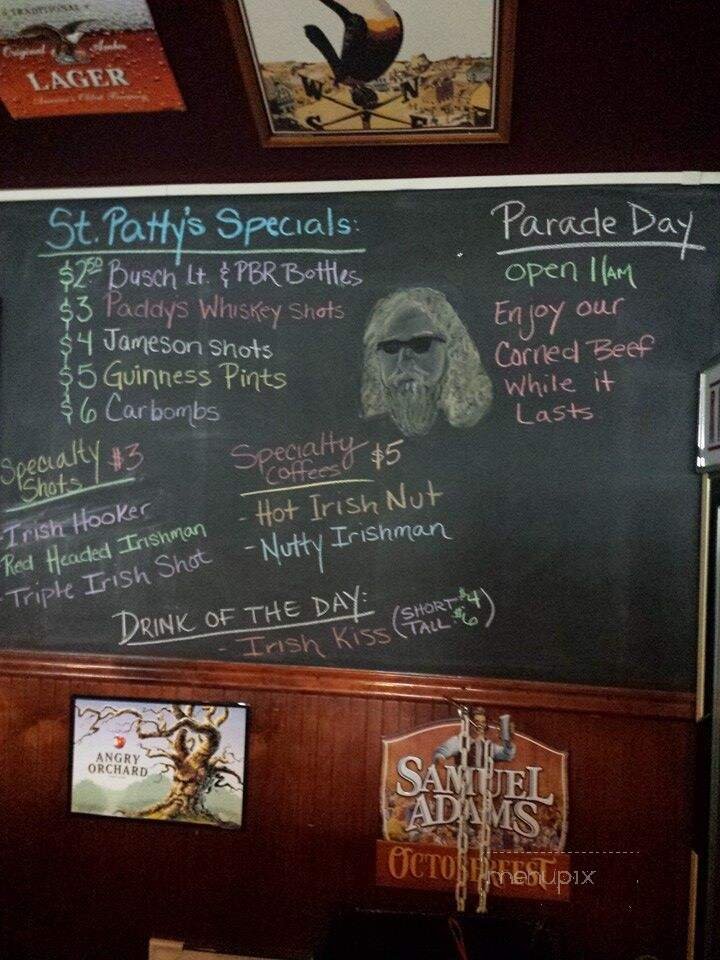 TRADITIONAL
Original Amber
LAGER
America's Oldest Brewery
W N
S E
St. Patty's Specials:
$2.50 Busch Lt. & PBR Bottles
$3 Paddy's Whiskey Shots
$4 Jameson Shots
$5 Guinness Pints
$6 Carbombs
Parade Day
open 11AM
Enjoy our
Corned Beef
While it
Lasts
Specialty Shots $3
- Irish Hooker
- Red Headed Irishman
- Triple Irish Shot
Specialty Coffees $5
- Hot Irish Nut
- Nutty Irishman
DRINK OF THE DAY:
- Irish Kiss (SHORT $4
TALL $6)
ANGRY
ORCHARD
SAMUEL
ADAMS
OCTOBERFEST
menupix